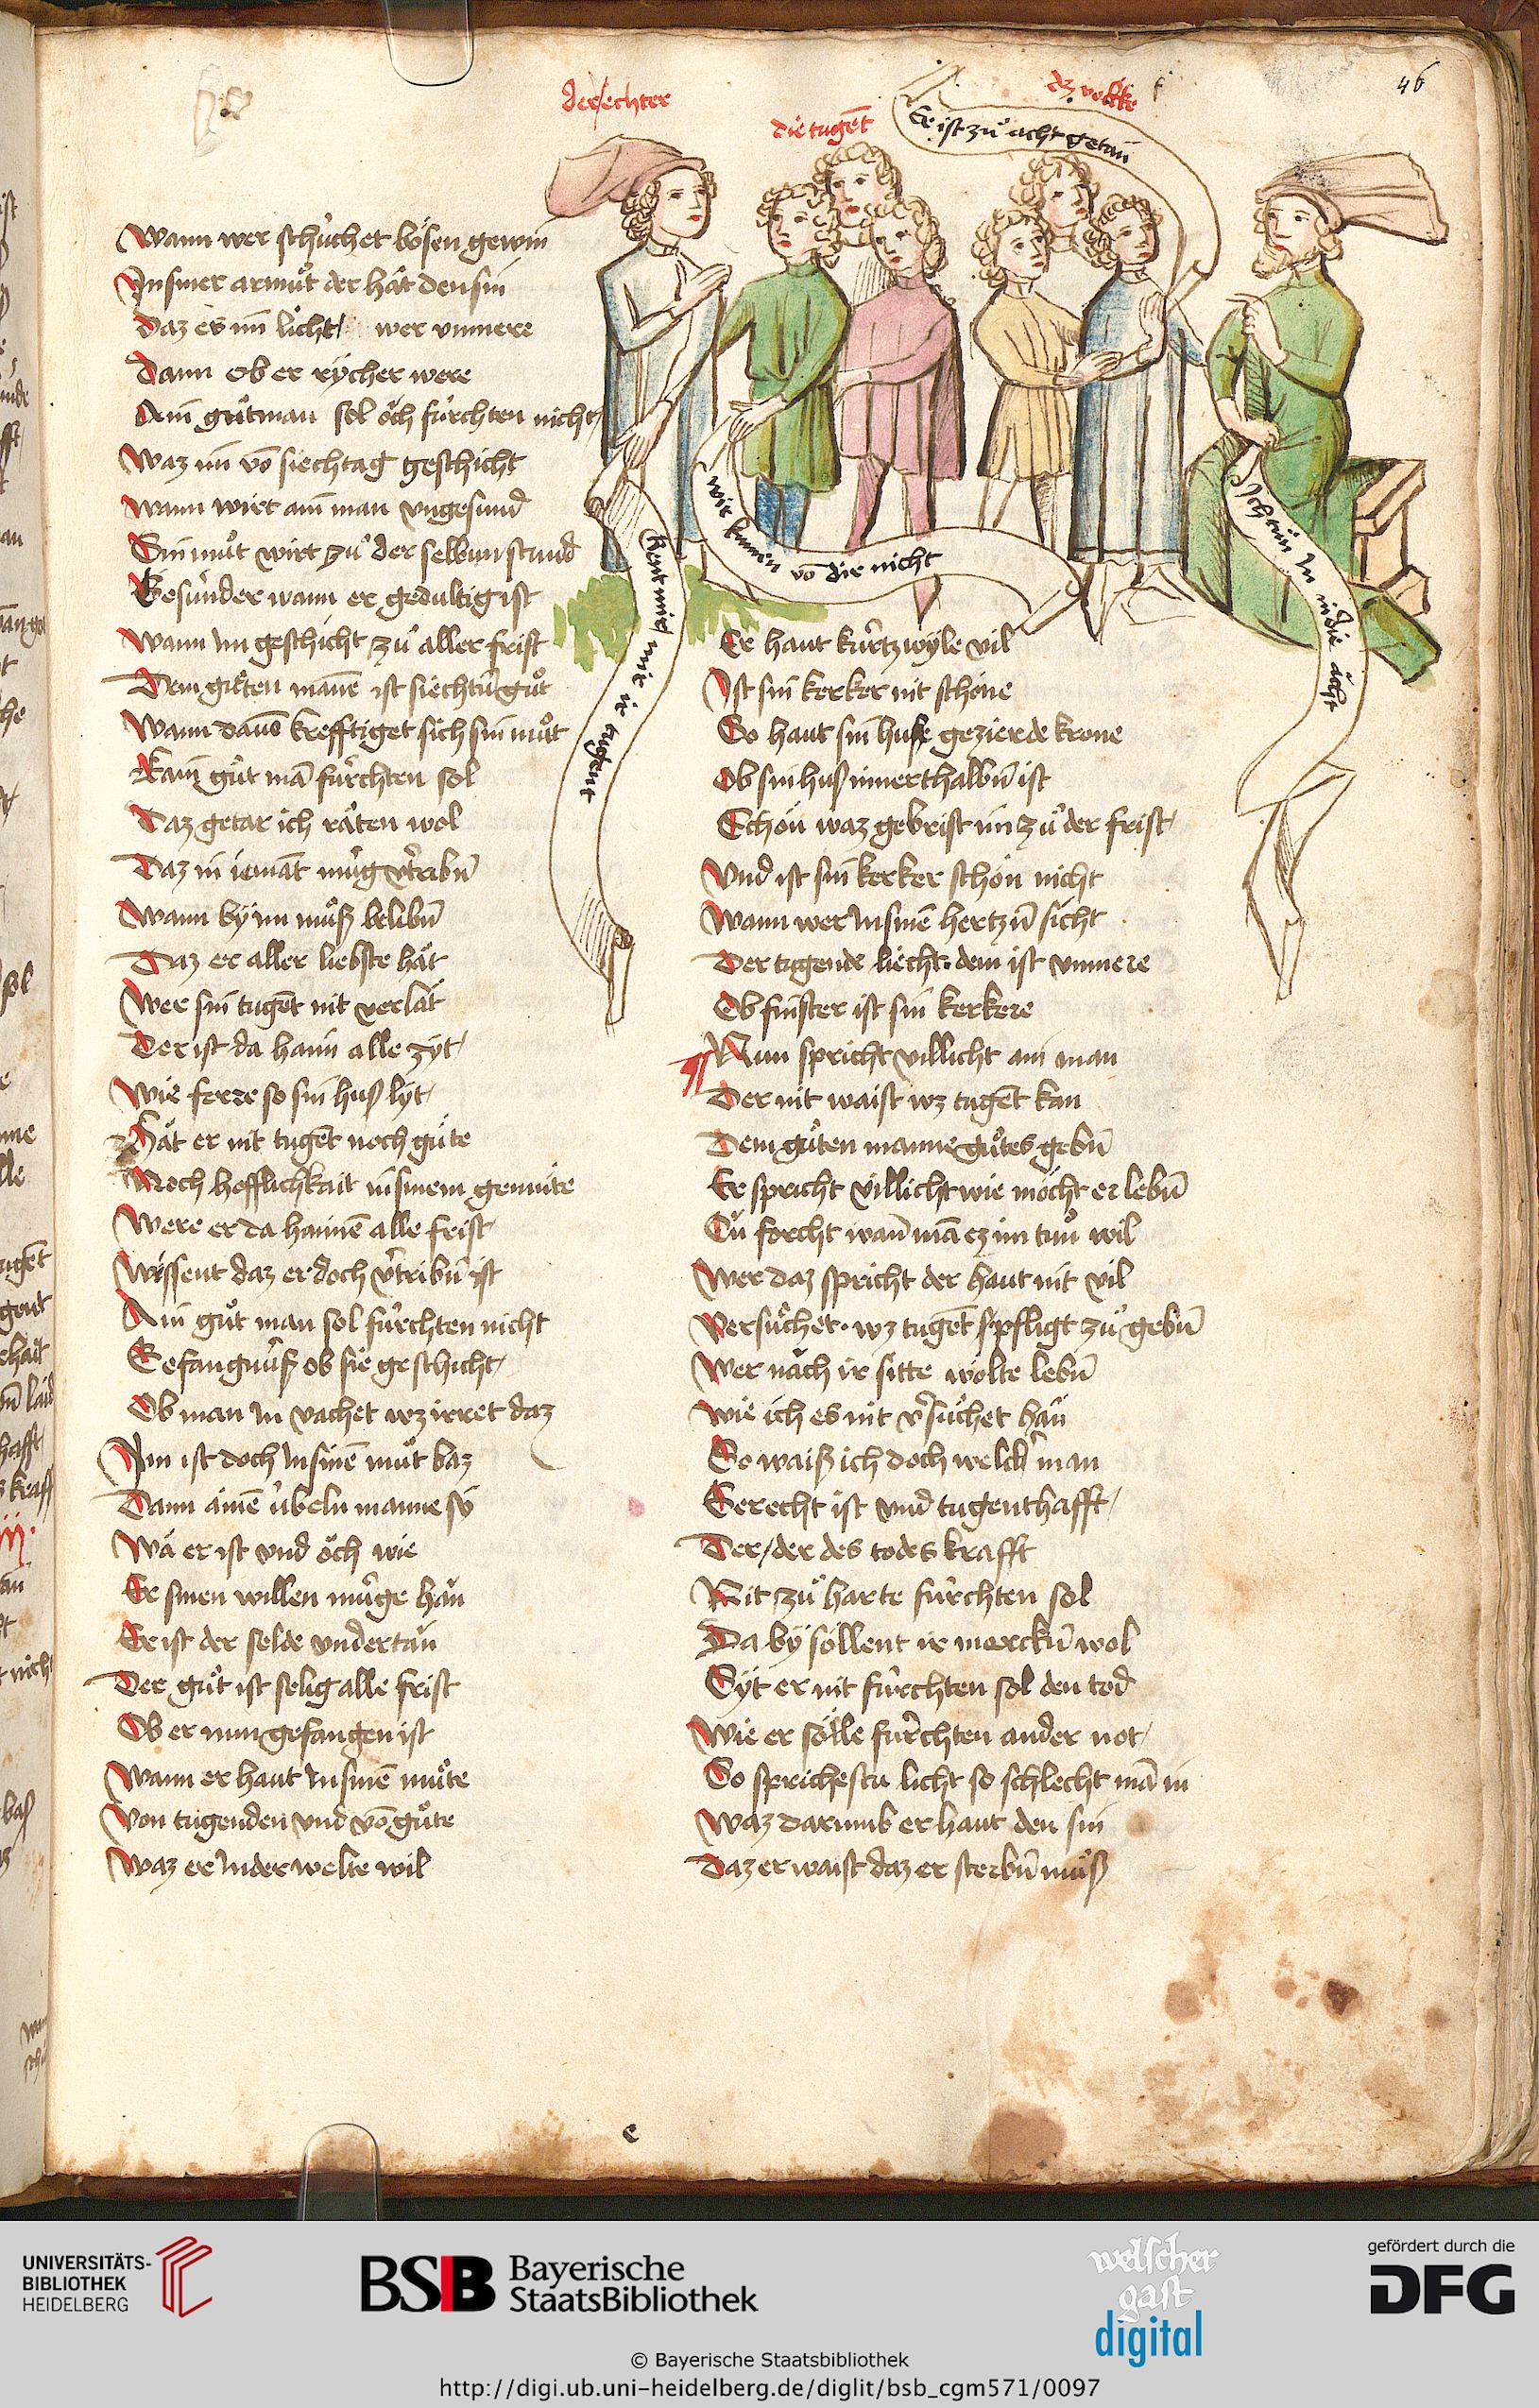 46
der echter
die tugēt
dz volke
Er ist zů acht getan
wir kumen vō dir nicht
kument mit mir ir tugent
Ich tůn In in die ăcht
Wann wer schüchet bösen gewin
In siner armůt der hăt den sin
Daz es im licht / wer vnmere
Dann ob er rycher were
Ain gůt man sol ŏch fürchten nicht
Waz im vō siechtag geschicht
Wann wirt ain man vngesund
Sin můt wirt zů der selbun stund
Gesünder wann er gedultig ist
Wann Im geschicht zů aller frist
Dem gůten manē ist siechtū gůt
Wann dauō krefftiget sich sin můt
Kain gůt mā fürchten sol
Daz getar ich răten wol
Daz in iemāt müg v͛tribū
Wann by im můß belibū
Daz er aller liebste hăt
Wer sin tugēt nit verlăt
Der ist da haim alle zyt
Wie ferre so sin huß lyt
Hăt er nit tugēt noch güte
Noch hofflichkait in sinem gemüte
Were er da haimē alle frist
Wissent daz er doch v͛tribū ist
Ain gůt man sol fürchten nicht
Gefangnüß ob sie geschicht
Ob man In vachet wz irret daz
Im ist doch In sinē můt baz
Dann ainē übeln manne sy
Wă er ist vnd ŏch wie
Er sinen willen müge hăn
Er ist der selde vndertăn
Der gůt ist selig alle frist
Ob er nun gefangen ist
Wann er haut In sinē můte
Von tugenden vnd vō gůte
Waz er In der welte wil
Er haut kürtzwyle vil
Ist sin kerker nit schöne
So haut sin huse gezierde krone
Ob sin huß innerthalbū ist
Schön waz gebrist im zů der frist
Vnd ist sin kerker schön nicht
Wann wer In sinē hertzū sicht
Der tugende liecht · dem ist vnmere
Ob finster ist sin kerkere
Nun spricht villicht ain man
Der nit waist wz tugēt kan
Dem gůten manne gůtes gebū
Er spricht villicht wie möcht er lebū
On forcht wan̄ mā ez im tun wil
Wer daz spricht der haut nit vil
Versůchet · wz tugēt pfligt zů gebū
Wer năch ir sitte wölte lebū
Wie ich es nit v͛sůchet hăn
So waiß ich doch welch͛ man
Gerecht ist vnd tugenthafft
Der / der des todes krafft
Nit zů harte fürchten sol
Da by söllent ir merckū wol
Syt er nit fürchten sol den tod
Wie er sölle fürchten ander not
So sprichestu licht so schlecht mā in
Waz darumb er haut den sin
Daz er waist daz er sterbū můß
e
UNIVERSITÄTS-
BIBLIOTHEK
HEIDELBERG
BSB Bayerische
StaatsBibliothek
welscher
gast
digital
gefördert durch die
DFG
© Bayerische Staatsbibliothek
http://digi.ub.uni-heidelberg.de/diglit/bsb_cgm571/0097